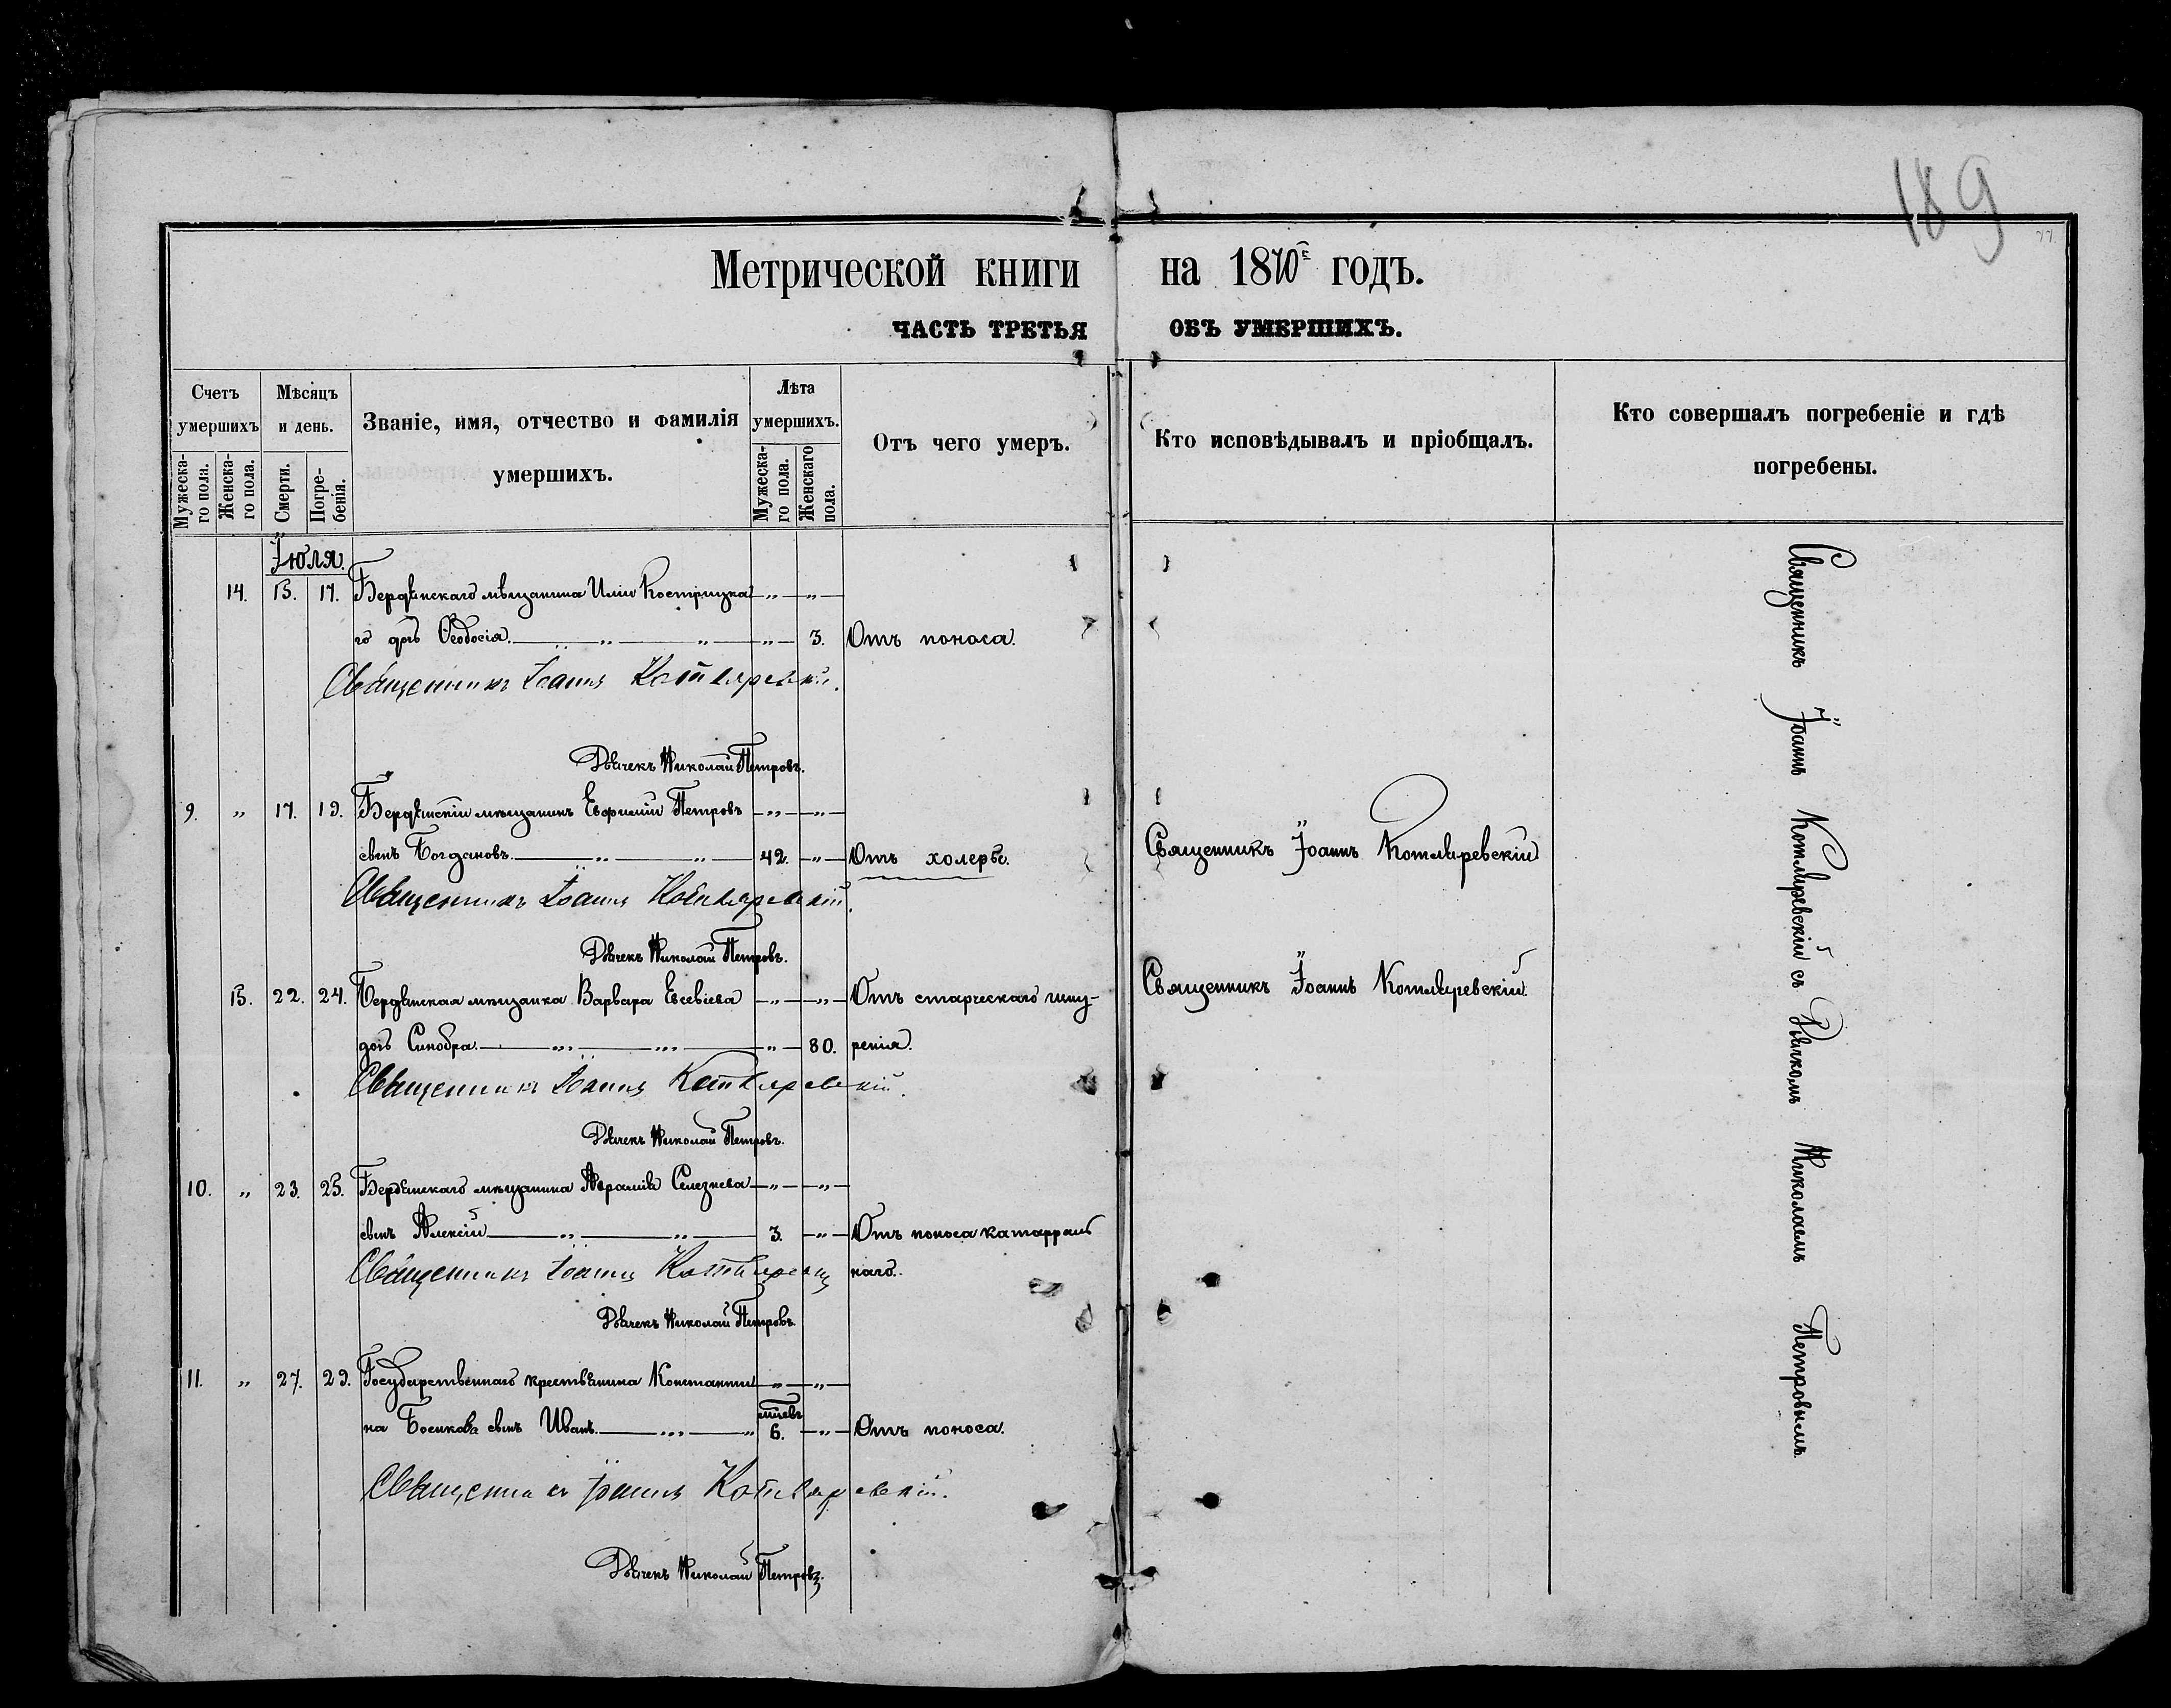 189
77.
Метрической книги на 1870й годъ.
ЧАСТЬ ТРЕТЬЯ ОБЪ УМЕРШИХЪ.
Счетъ умершихъ
Мужеска-го пола.
Женска-го пола.
Мѣсяцъ и день.
Смерти.
Погре-бенія.
Званіе, имя, отчество и фамилія умершихъ.
Лѣта умершихъ.
Мужеска-го пола.
Женскаго пола.
Отъ чего умеръ.
Кто исповѣдывалъ и пріобщалъ.
Кто совершалъ погребеніе и гдѣ погребены.
Іюля.
14. 15. 17. Бердянскаго мѣщанина Иліи Кострицка
го дочь Ѳеодосія. 3. Отъ поноса.
Священникъ Іоаннъ Котляревскій.
Дьячекъ Николай Петровъ.
9. " 17. 19. Бердянскій мѣщанинъ Евфимій Петровъ
сынъ Богдановъ. 42. Отъ холеры. Священникъ Іоаннъ Котляревскій
Священникъ Іоаннъ Котляревскій.
Дьячекъ Николай Петровъ.
15. 22. 24. Бердянская мѣщанка Варвара Евсевіева Отъ старческаго изну- Священникъ Іоаннъ Котляревскій.
дочь Синобра. 80. ренія.
Священникъ Іоаннъ Котляревскій.
Дьячекъ Николай Петровъ.
10. " 23. 25. Бердянскаго мѣщанина Авраамія Селезнева
сынъ Алексій 3. Отъ поноса катарраль
наго.
Священникъ Іоаннъ Котляревскій
Дьячекъ Николай Петровъ.
11. " 27. 29. Государственнаго крестьянина Константи
на Босикова сынъ Иванъ. мѣсяцъ 6. Отъ поноса.
Священникъ Іоаннъ Котляревскій.
Дьячекъ Николай Петровъ.
Священникъ Іоаннъ Котляревскій съ Дьячкомъ Николаемъ Петровымъ